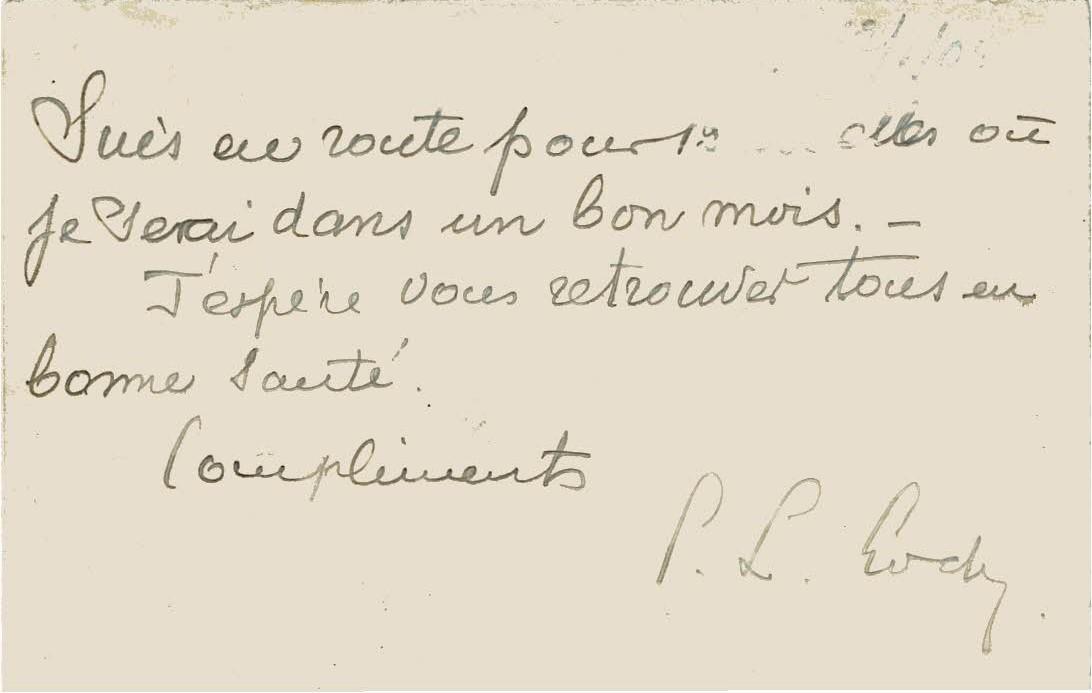 Suis en route pour où
je serai dans un bon mois. –
J'éspère vous retrouver tous en
bonne santé.
Compliments
P. L.